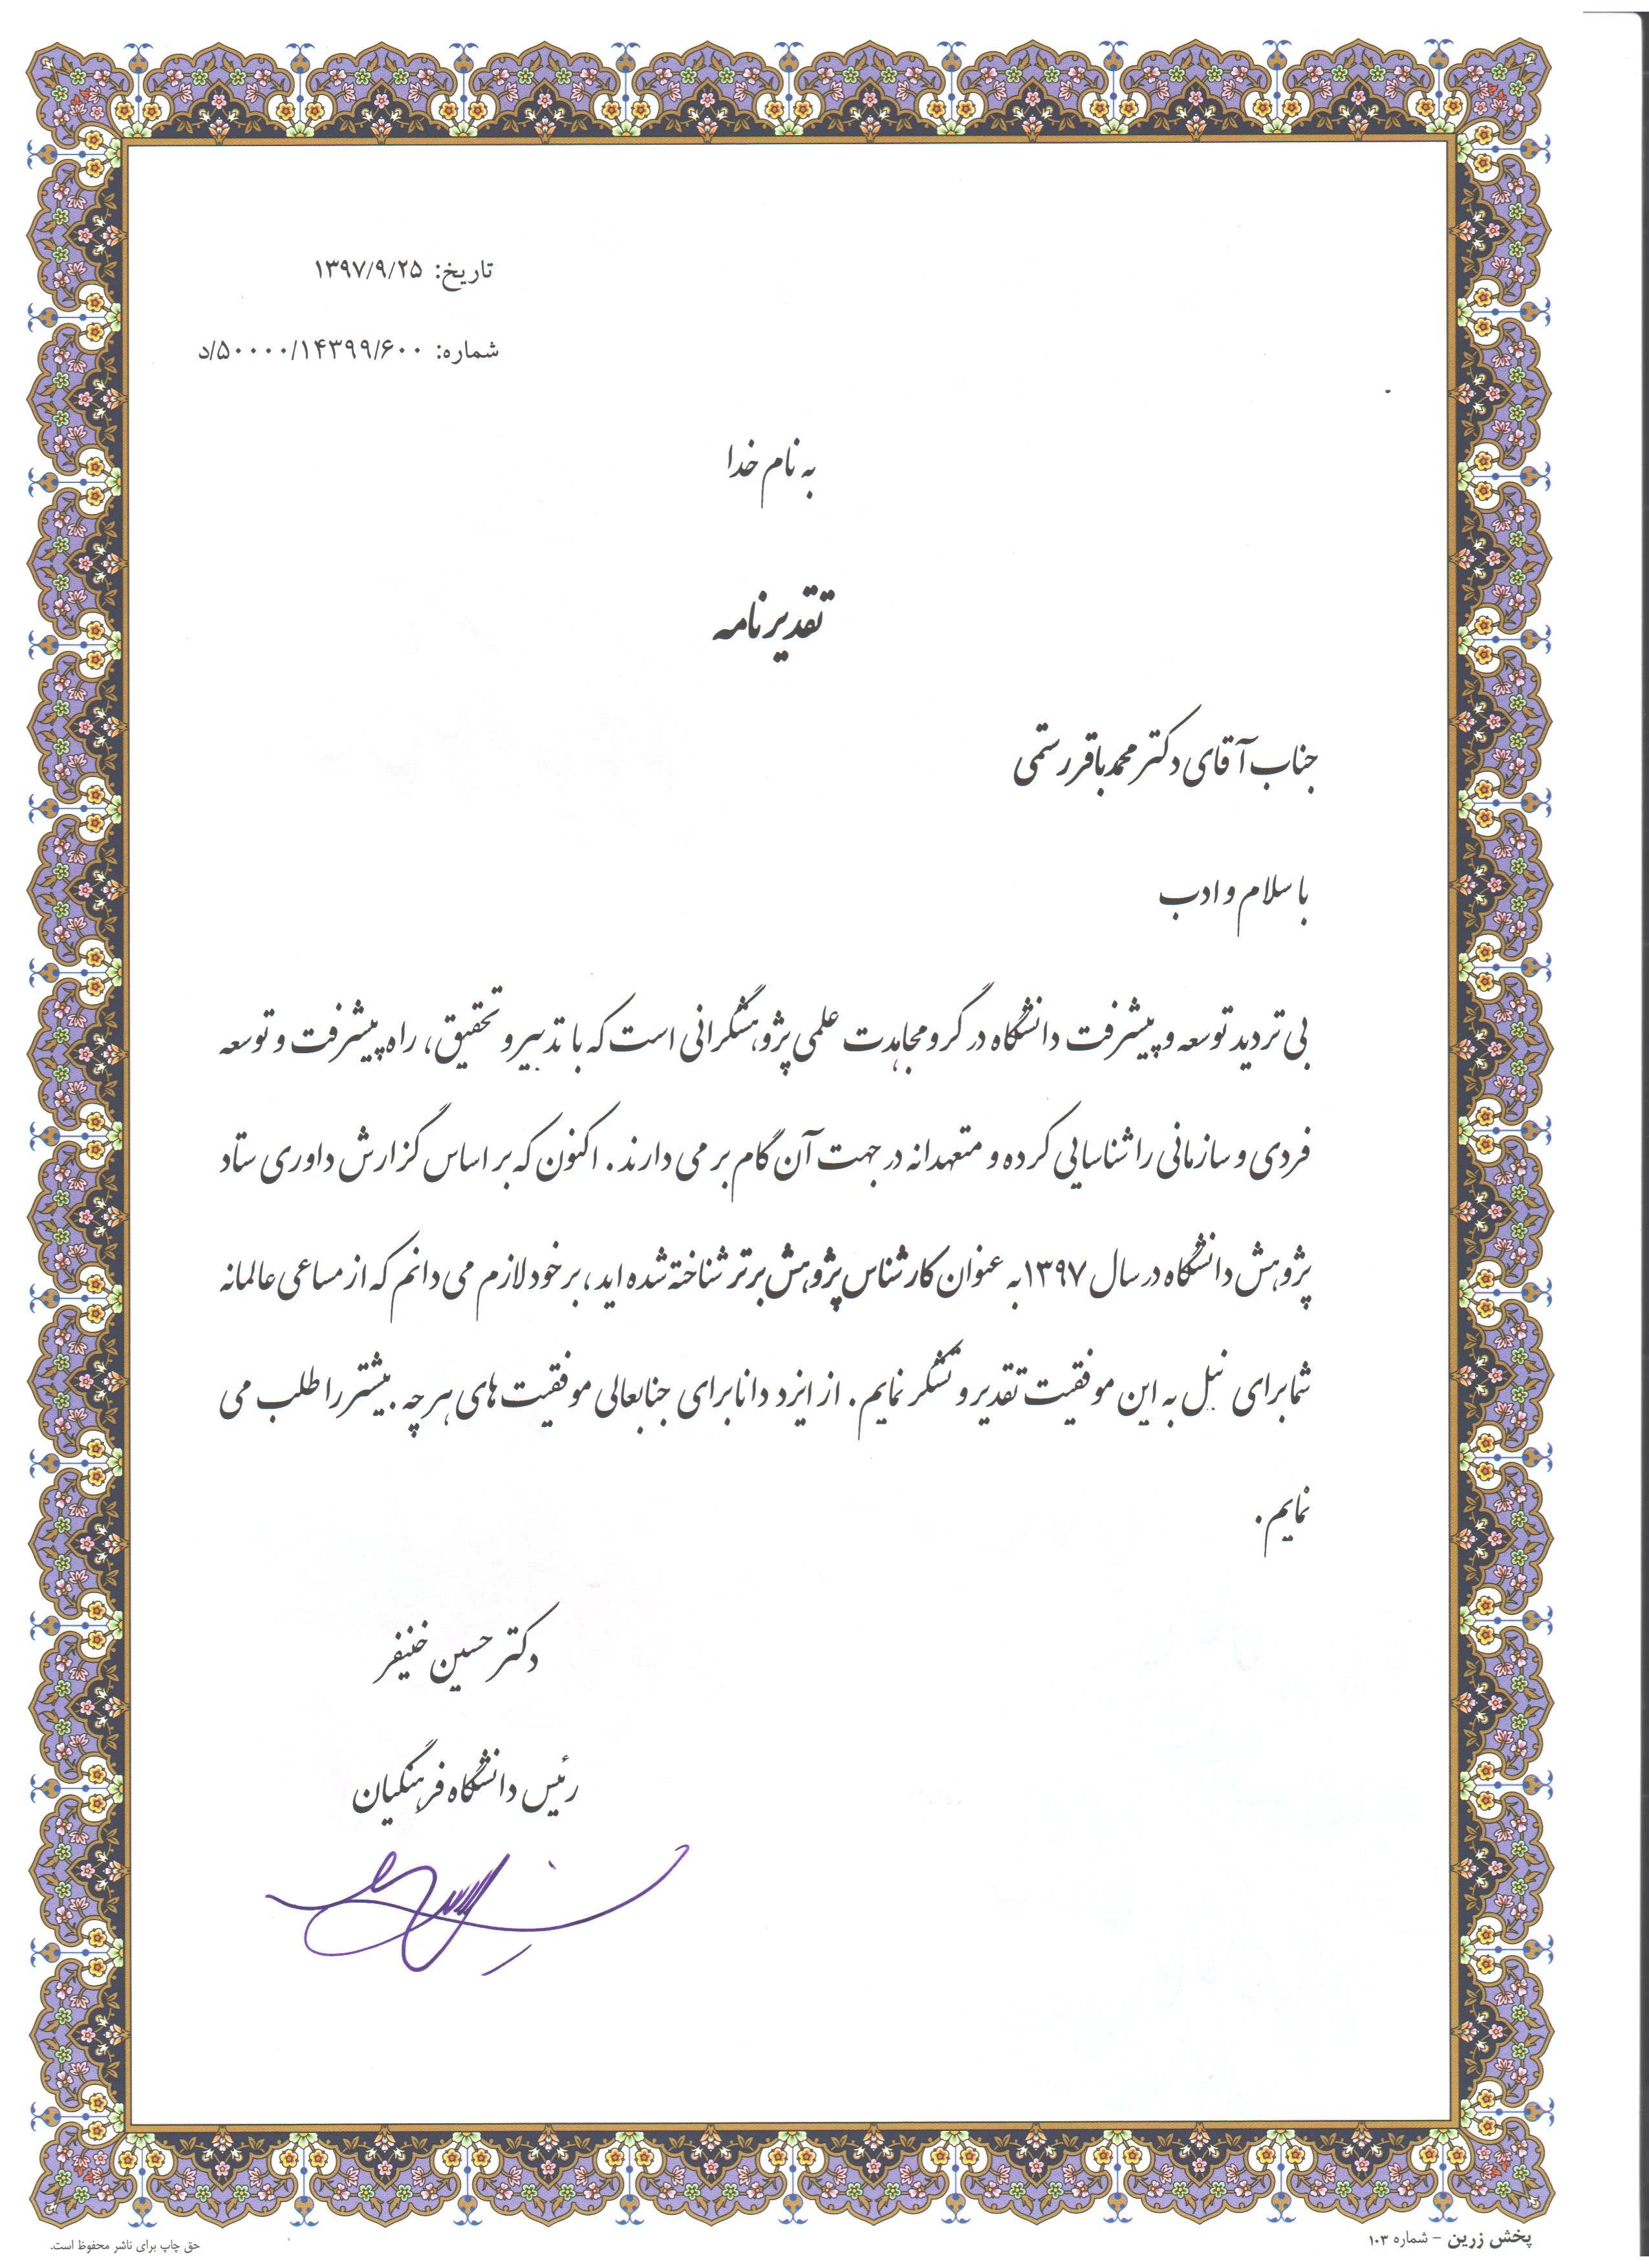 تاریخ: ۱۳۹۷/۹/۲۵
شماره: ۵۰۰۰۰/۱۴۳۹۹/۶۰۰/د
به نام خدا
تقدیرنامه
جناب آقای دکتر محمدباقر رستمی
با سلام و ادب
بی تردید توسعه و پیشرفت دانشگاه در گرو مجاهدت علمی پژوهشگرانی است که با تدبیر و تحقیق، راه پیشرفت و توسعه
فردی و سازمانی را شناسایی کرده و متعهدانه در جهت آن گام بر می دارند. اکنون که بر اساس گزارش داوری ستاد
پژوهش دانشگاه در سال ۱۳۹۷ به عنوان کارشناس پژوهش برتر شناخته شده اید، بر خود لازم می دانم که از مساعی عالمانه
شما برای نیل به این موفقیت تقدیر و تشکر نمایم. از ایزد دانا برای جنابعالی موفقیت های هرچه بیشتر را طلب می
نمایم.
دکتر حسین خنیفر
رئیس دانشگاه فرهنگیان
پخش زرین - شماره ۱۰۳
حق چاپ برای ناشر محفوظ است.